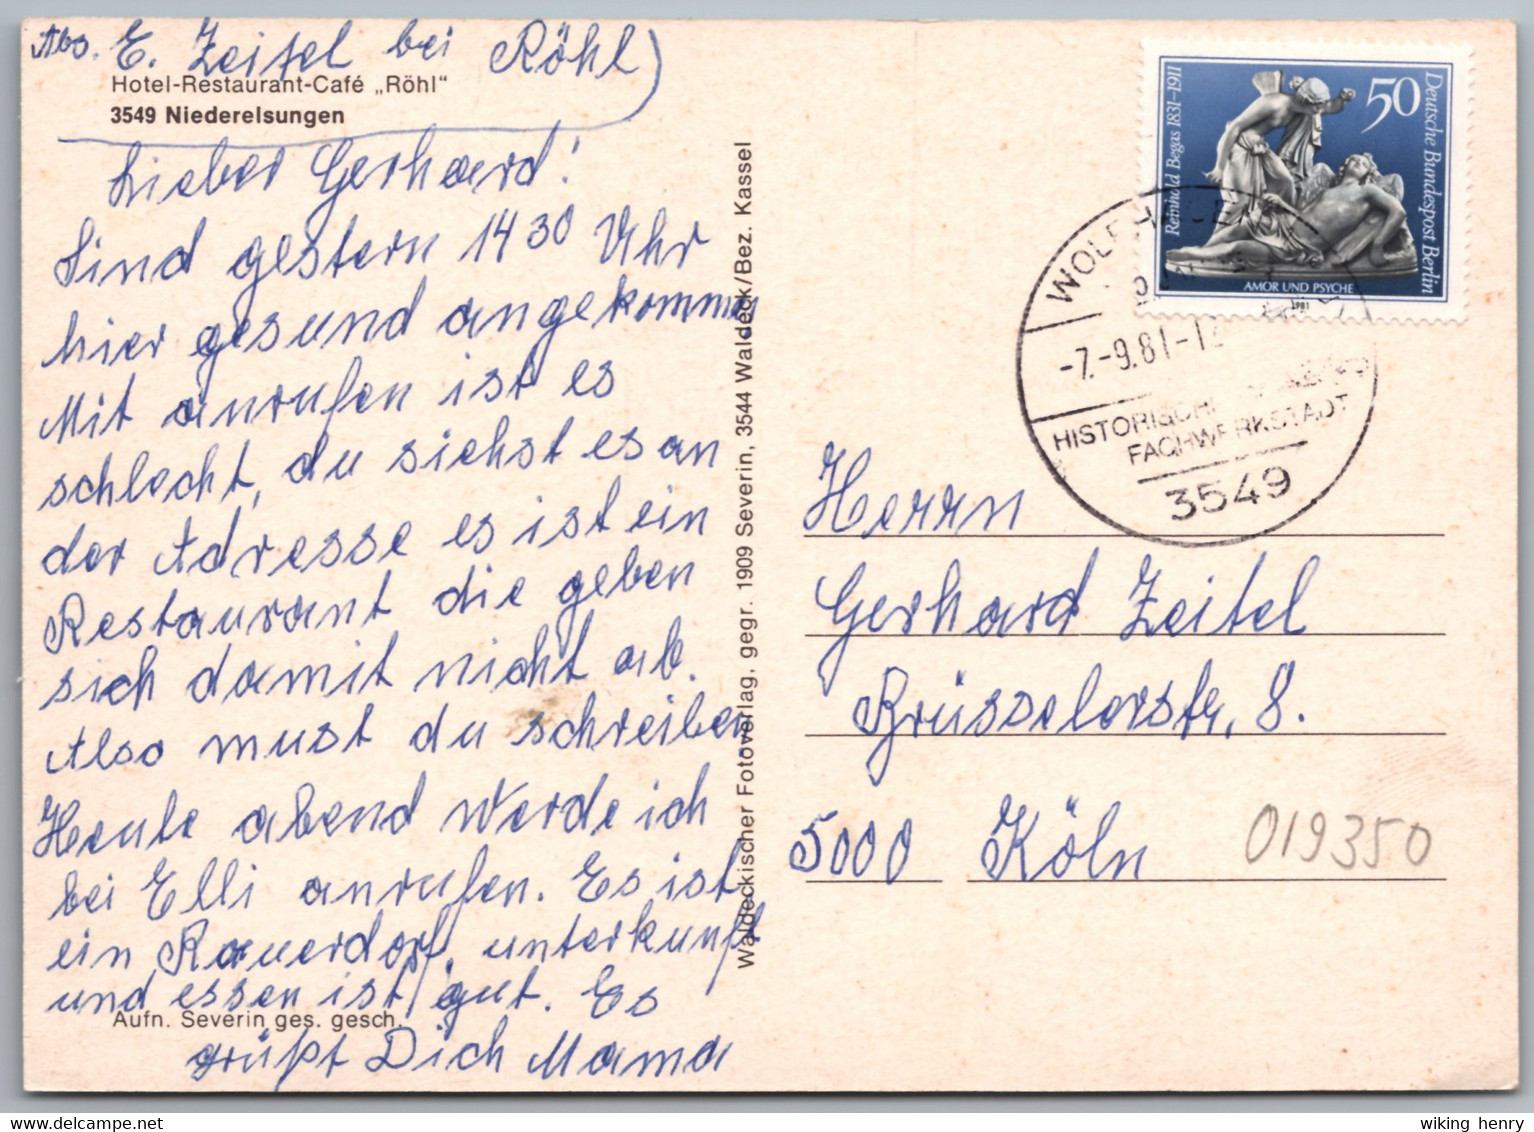 Abs. E. Zeitel bei Röhl
Hotel-Restaurant-Café „Röhl“
3549 Niederelsungen
Lieber Gerhard!
Sind gestern 14 30 Uhr
hier gesund angekommen
Mit anrufen ist es
schlecht, du siehst es an
der Adresse es ist ein
Restaurant die geben
sich damit nicht ab.
Also must du schreiben
Heute abend werde ich
bei Elli anrufen. Es ist
ein Bauerdorf, unterkunft
und essen ist gut. Es
Aufn. Severin ges. gesch.
grüßt Dich Mama
Waldeckischer Fotoverlag, gegr. 1909 Severin, 3544 Waldeck/Bez. Kassel
Reinhold Begas 1831–1911
50
Deutsche Bundespost Berlin
AMOR UND PSYCHE
1981
-7.-9.81-12
HISTORISCHE
FACHWERKSTADT
3549
Herrn
Gerhard Zeitel
Brüsselerstr. 8.
5000 Köln
019350
wiking henry